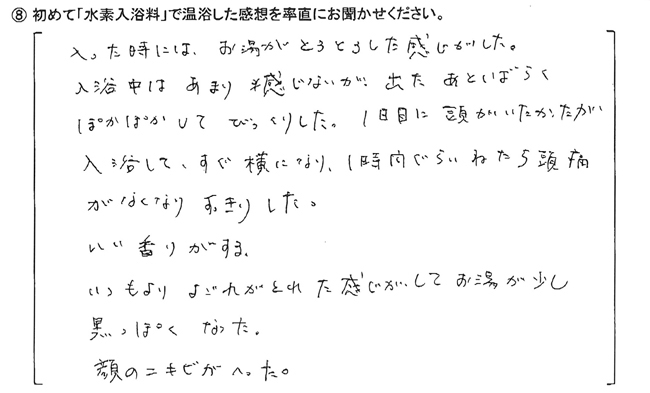 ⑧ 初めて「水素入浴料」で温浴した感想を率直にお聞かせください。
入った時には、お湯がとろとろした感じがした。
入浴中は あまり 感じないが、出た あとしばらく
ぽかぽかして びっくりした。1日目に 頭がいたかったが
入浴して、すぐ横になり、1時間ぐらい ねたら頭痛
がなくなり すっきりした。
いい香りがする。
いつもより よごれがとれた感じがして お湯が少し
黒っぽく なった。
顔のニキビがへった。